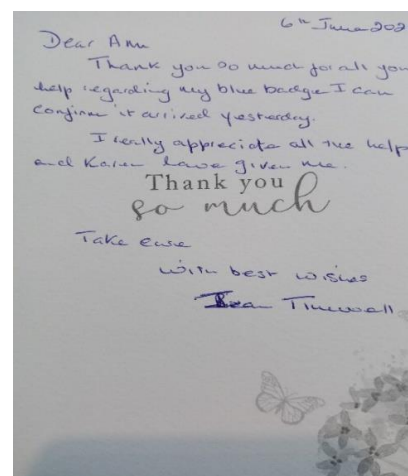 6th June 202
Dear Ann
Thank you so much for all you
help regarding my blue badge I can
confirm it arrived yesterday.
I really appreciate all the help
and Karen have given me.
Thank you
so much
Take care
with best wishes